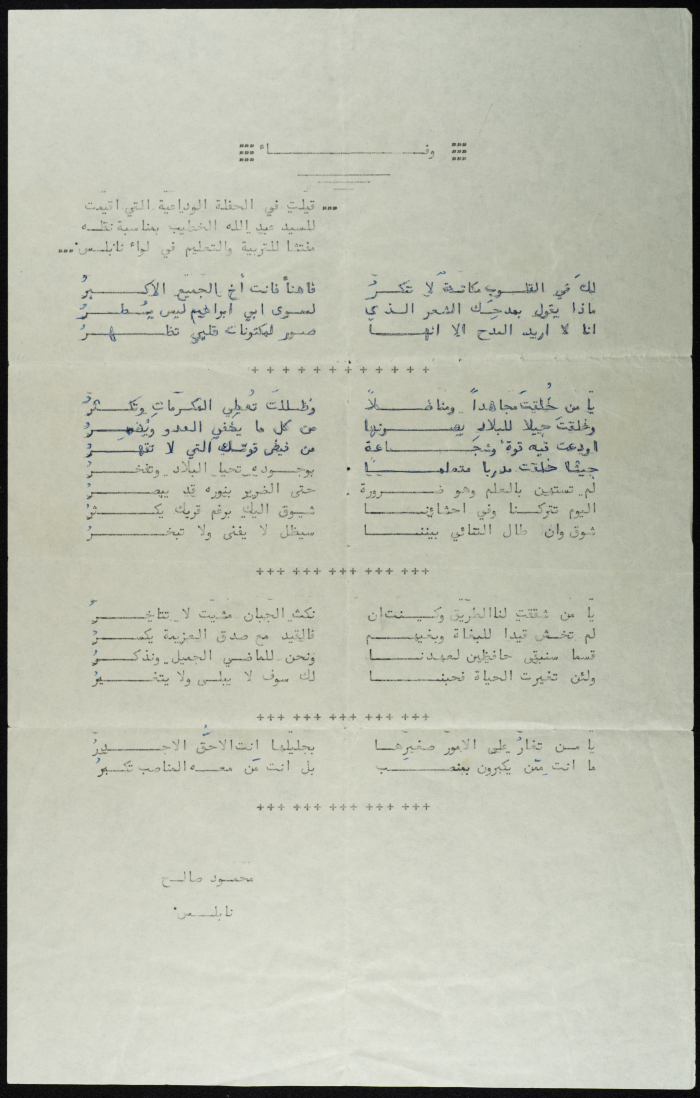 وفاء
قيلت في الحفلة الوداعية التي اقيمت
للسيد عبد الله الخطيب بمناسبة نقله
مفتشا للتربية والتعليم في لواء نابلس.
لكَ في القلوب مكانة لا تنكرُ فاهنأ فانت أخ الجميع الاكبرُ
ماذا يقول بمدحِك الشعر الذي لسوى ابي ابراهيم ليس يسُطرُ
انا لا اريد المدح الا انها صور لمكنونات قلبي تظهرُ
يا من خُلقتَ مجاهداً ومناضلاً وظللتَ تُعطي المكرمات وتكثرُ
وخلقتَ جيلا للبلاد يصونها من كل ما يخفي العدو ويُضمِرُ
اودعت فيه قوة وشجاعة من فيض قوتك التي لا تقهرُ
جيشا خلقت مدربا متعلما بوجوده تحيا البلاد وتفخرُ
لم تستهن بالعلم وهو ضرورة حتى الضرير بنوره قد يبصرُ
اليوم تتركنا وفي احشائنا شوق اليك برغم قربك يكثرُ
شوق وان طال التنائي بيننا سيظل لا يفنى ولا تبخرُ
يا من شققت لنا الطريق وكنت ان نكث الجبان مشيت لا تتاخرُ
لم تخش قيدا للبغاة وبغيهم فالقيد مع صدق العزيمة يكسرُ
قسما سنبقى حافظين لعهدنا ونحن للماضي الجميل ونذكرُ
ولئن تغيرت الحياة فحبنا لك سوف لا يبلى ولا يتغيرُ
يا من تغارُ على الامور صغيرها بجليلها انت الاحقُّ الاجدرُ
ما انت ممّن يكبرون بمنصب بل انت مَن معه المناصب تكبرُ
محمود صالح
نابلس.